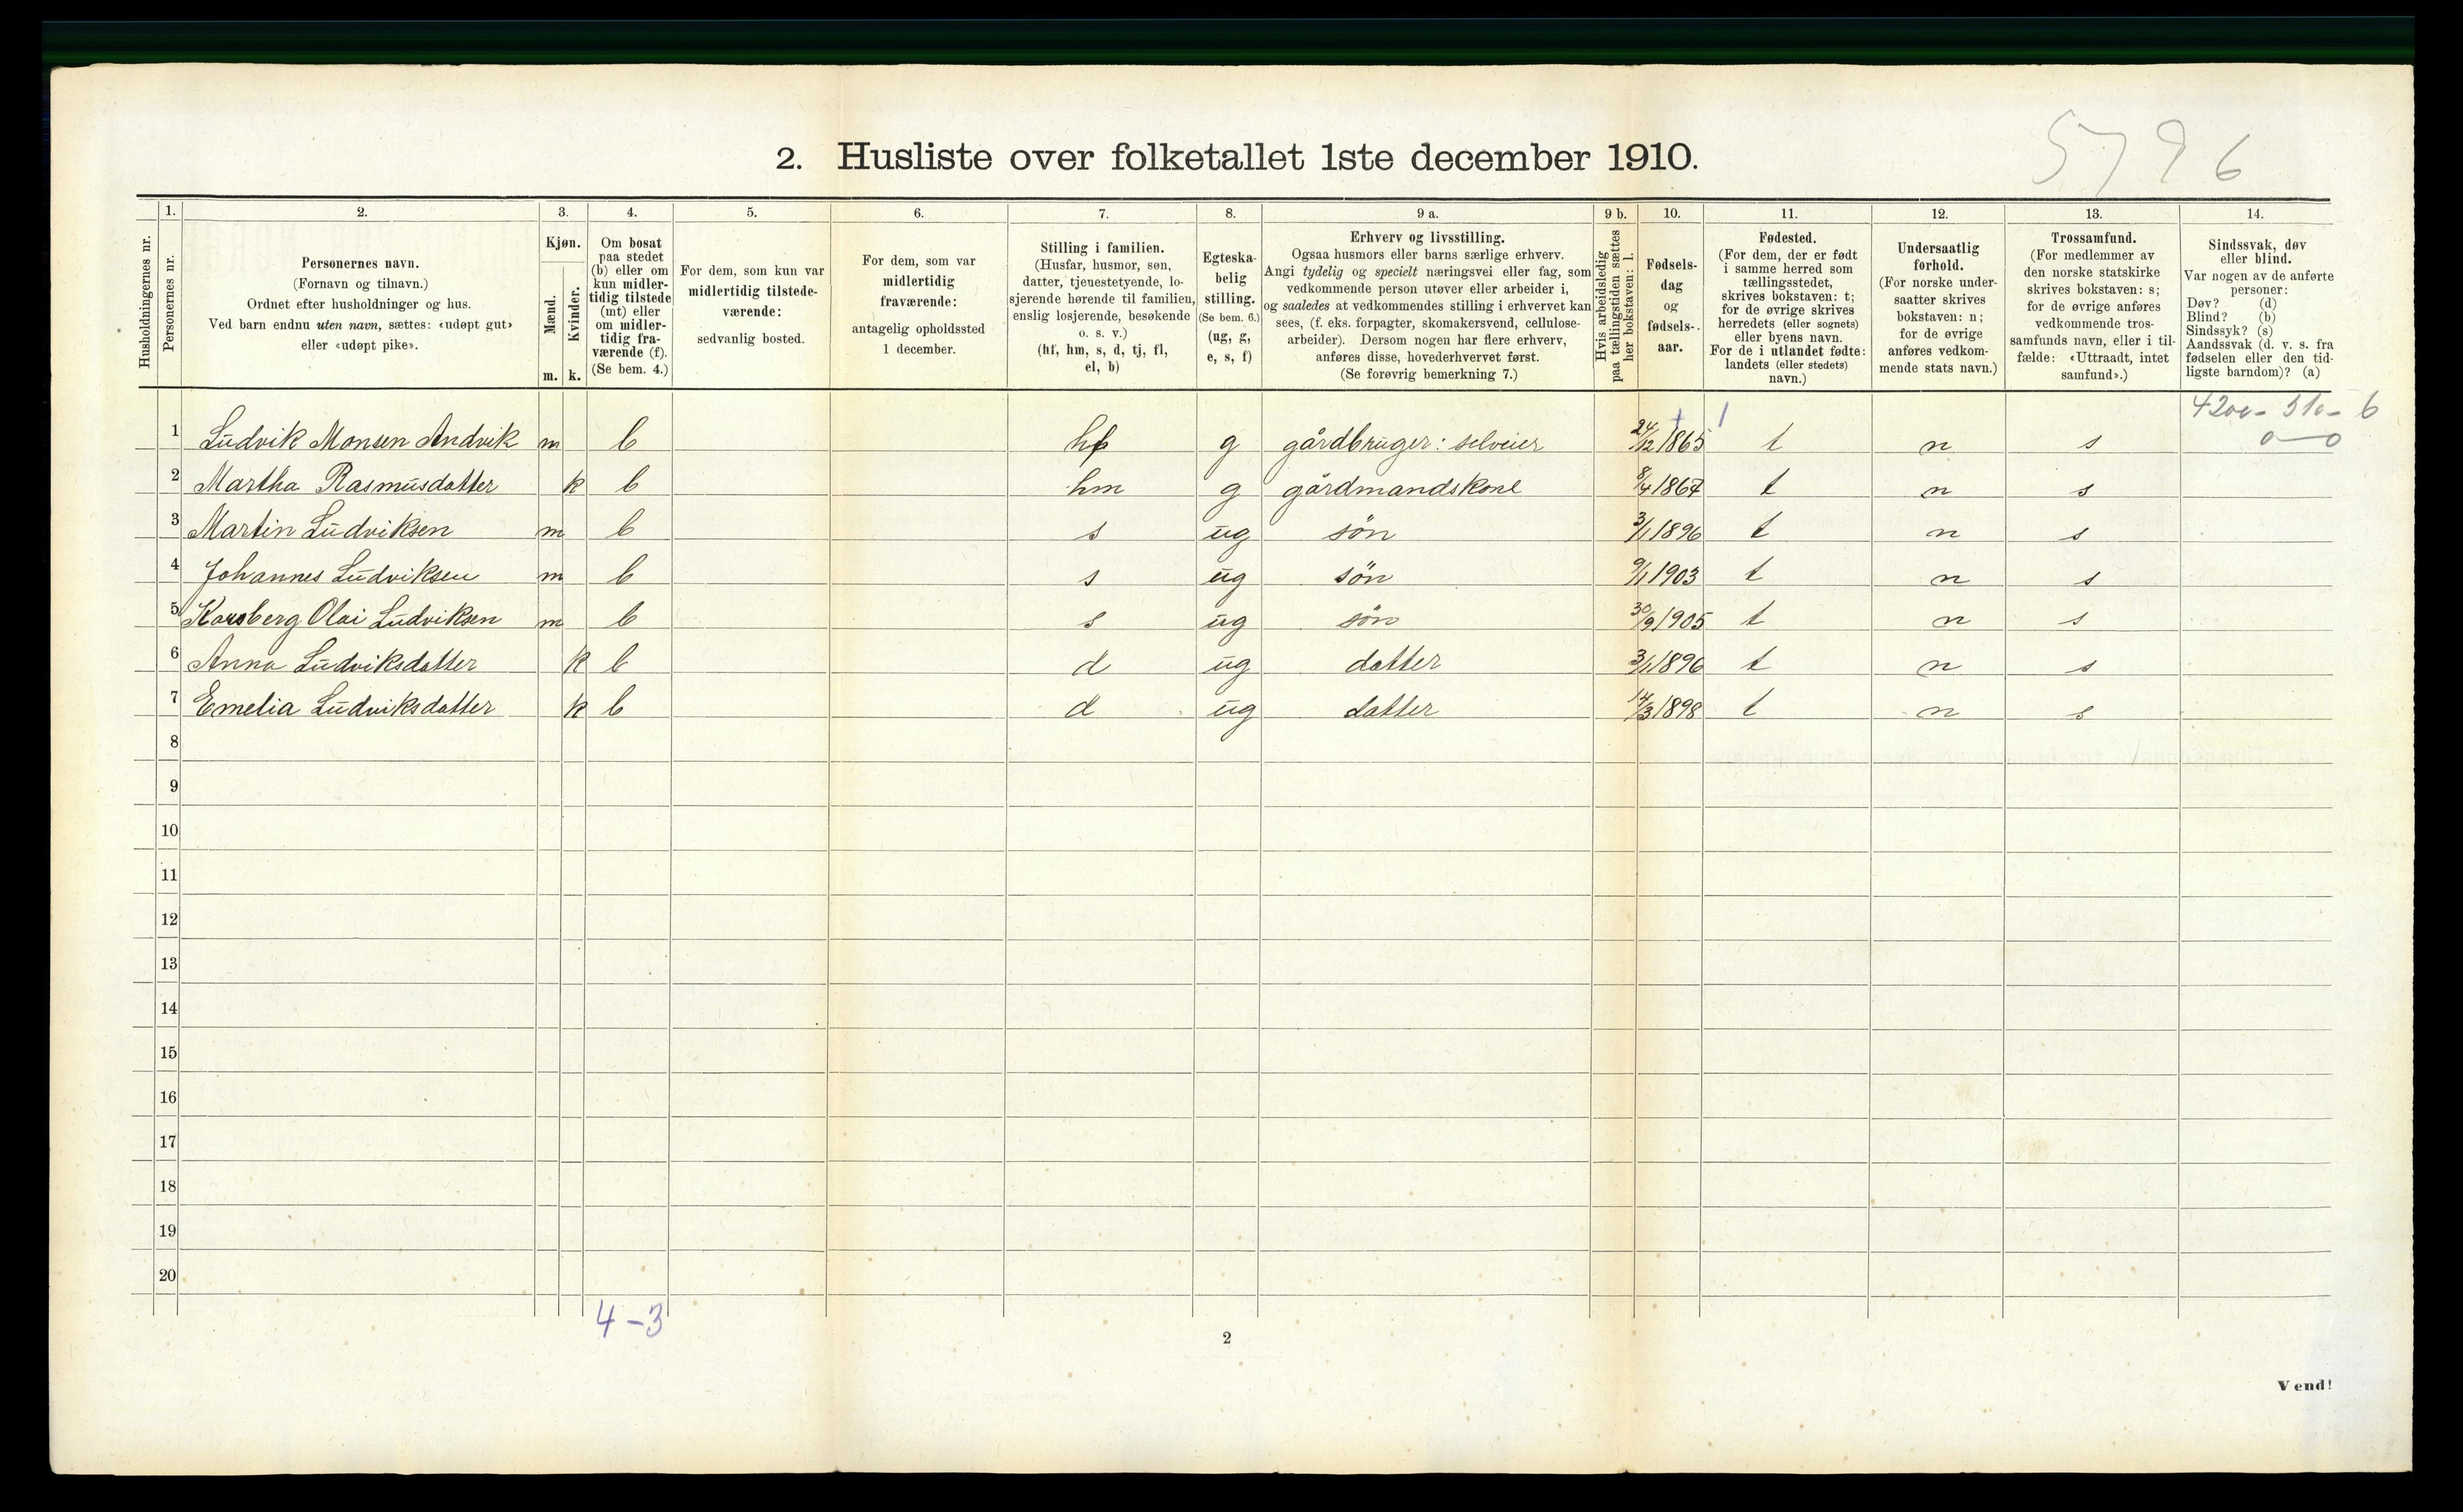 5796
2. Husliste over folketallet 1ste december 1910.
Husholdningernes nr.
1.
Personernes nr.
2.
Personernes navn.
(Fornavn og tilnavn.)
Ordnet efter husholdninger og hus.
Ved barn endnu uten navn, sættes: «udøpt gut»
eller «udøpt pike».
3.
Kjøn.
Mænd.
Kvinder.
m. k.
4.
Om bosat
paa stedet
(b) eller om
kun midler-
tidig tilstede
(mt) eller
om midler-
tidig fra-
værende (f).
(Se bem. 4.)
5.
For dem, som kun var
midlertidig tilstede-
værende:
sedvanlig bosted.
6.
For dem, som var
midlertidig
fraværende:
antagelig opholdssted
1 december.
7.
Stilling i familien.
(Husfar, husmor, søn,
datter, tjenestetyende, lo-
sjerende hørende til familien,
enslig losjerende, besøkende
o. s. v.)
(hf, hm, s, d, tj, fl,
el, b)
8.
Egteska-
belig
stilling.
(Se bem. 6.)
(ug, g,
e, s, f)
9 a.
Erhverv og livsstilling.
Ogsaa husmors eller barns særlige erhverv.
Angi tydelig og specielt næringsvei eller fag, som
vedkommende person utøver eller arbeider i,
og saaledes at vedkommendes stilling i erhvervet kan
sees, (f. eks. forpagter, skomakersvend, cellulose-
arbeider). Dersom nogen har flere erhverv,
anføres disse, hovederhvervet først.
(Se forøvrig bemerkning 7.)
9 b.
Hvis arbeidsledig
paa tællingstiden sættes
her bokstaven: l.
10.
Fødsels-
dag
og
fødsels-
aar.
11.
Fødested.
(For dem, der er født
i samme herred som
tællingsstedet,
skrives bokstaven: t;
for de øvrige skrives
herredets (eller sognets)
eller byens navn.
For de i utlandet fødte:
landets (eller stedets)
navn.)
12.
Undersaatlig
forhold.
(For norske under-
saatter skrives
bokstaven: n;
for de øvrige
anføres vedkom-
mende stats navn.)
13.
Trossamfund.
(For medlemmer av
den norske statskirke
skrives bokstaven: s;
for de øvrige anføres
vedkommende tros-
samfunds navn, eller i til-
fælde: «Uttraadt, intet
samfund».)
14.
Sindssvak, døv
eller blind.
Var nogen av de anførte
personer:
Døv? (d)
Blind? (b)
Sindssyk? (s)
Aandssvak (d. v. s. fra
fødselen eller den tid-
ligste barndom)? (a)
1 Ludvik Monsen Andvik m b hf g gårdbruger: selveier 24/12 1865 t n s 0—0
2 Martha Rasmusdatter k b hm g gårdmandskone 8/4 1867 t n s
3 Martin Ludviksen m b s ug sön 3/1 1896 t n s
4 Johannes Ludviksen m b s ug sön 9/1 1903 t n s
5 Olai Ludviksen m b s ug sön 30/9 1905 t n s
6 Anna Ludviksdatter k b d ug datter 3/1 1896 t n s
7 Emelia Ludviksdatter k b d ug datter 14/3 1898 t n s
8
9
10
11
12
13
14
15
16
17
18
19
20
4-3
2
Vend!